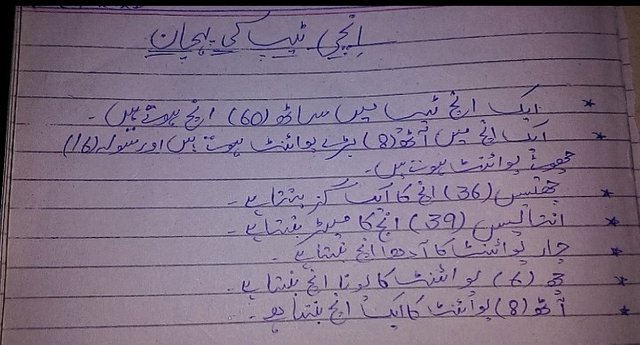 اِنچی ٹیپ کی پہچان
* ایک انچ ٹیپ میں ساٹھ (60) انچ ہوتے ہیں۔
* ایک انچ میں آٹھ (8) بڑے پوائنٹ ہوتے ہیں اور سولہ (16)
چھوٹے پوائنٹ ہوتے ہیں۔
* چھتیس (36) انچ کا ایک گز بنتا ہے۔
* انتالیس (39) انچ کا میٹر بنتا ہے۔
* چار پوائنٹ کا آدھا انچ بنتا ہے۔
* چھ (6) پوائنٹ کا پونا انچ بنتا ہے۔
* آٹھ (8) پوائنٹ کا ایک انچ بنتا ہے۔